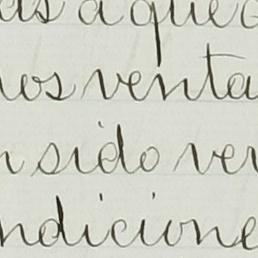 as a que
os venta
n sido ver
ndicione